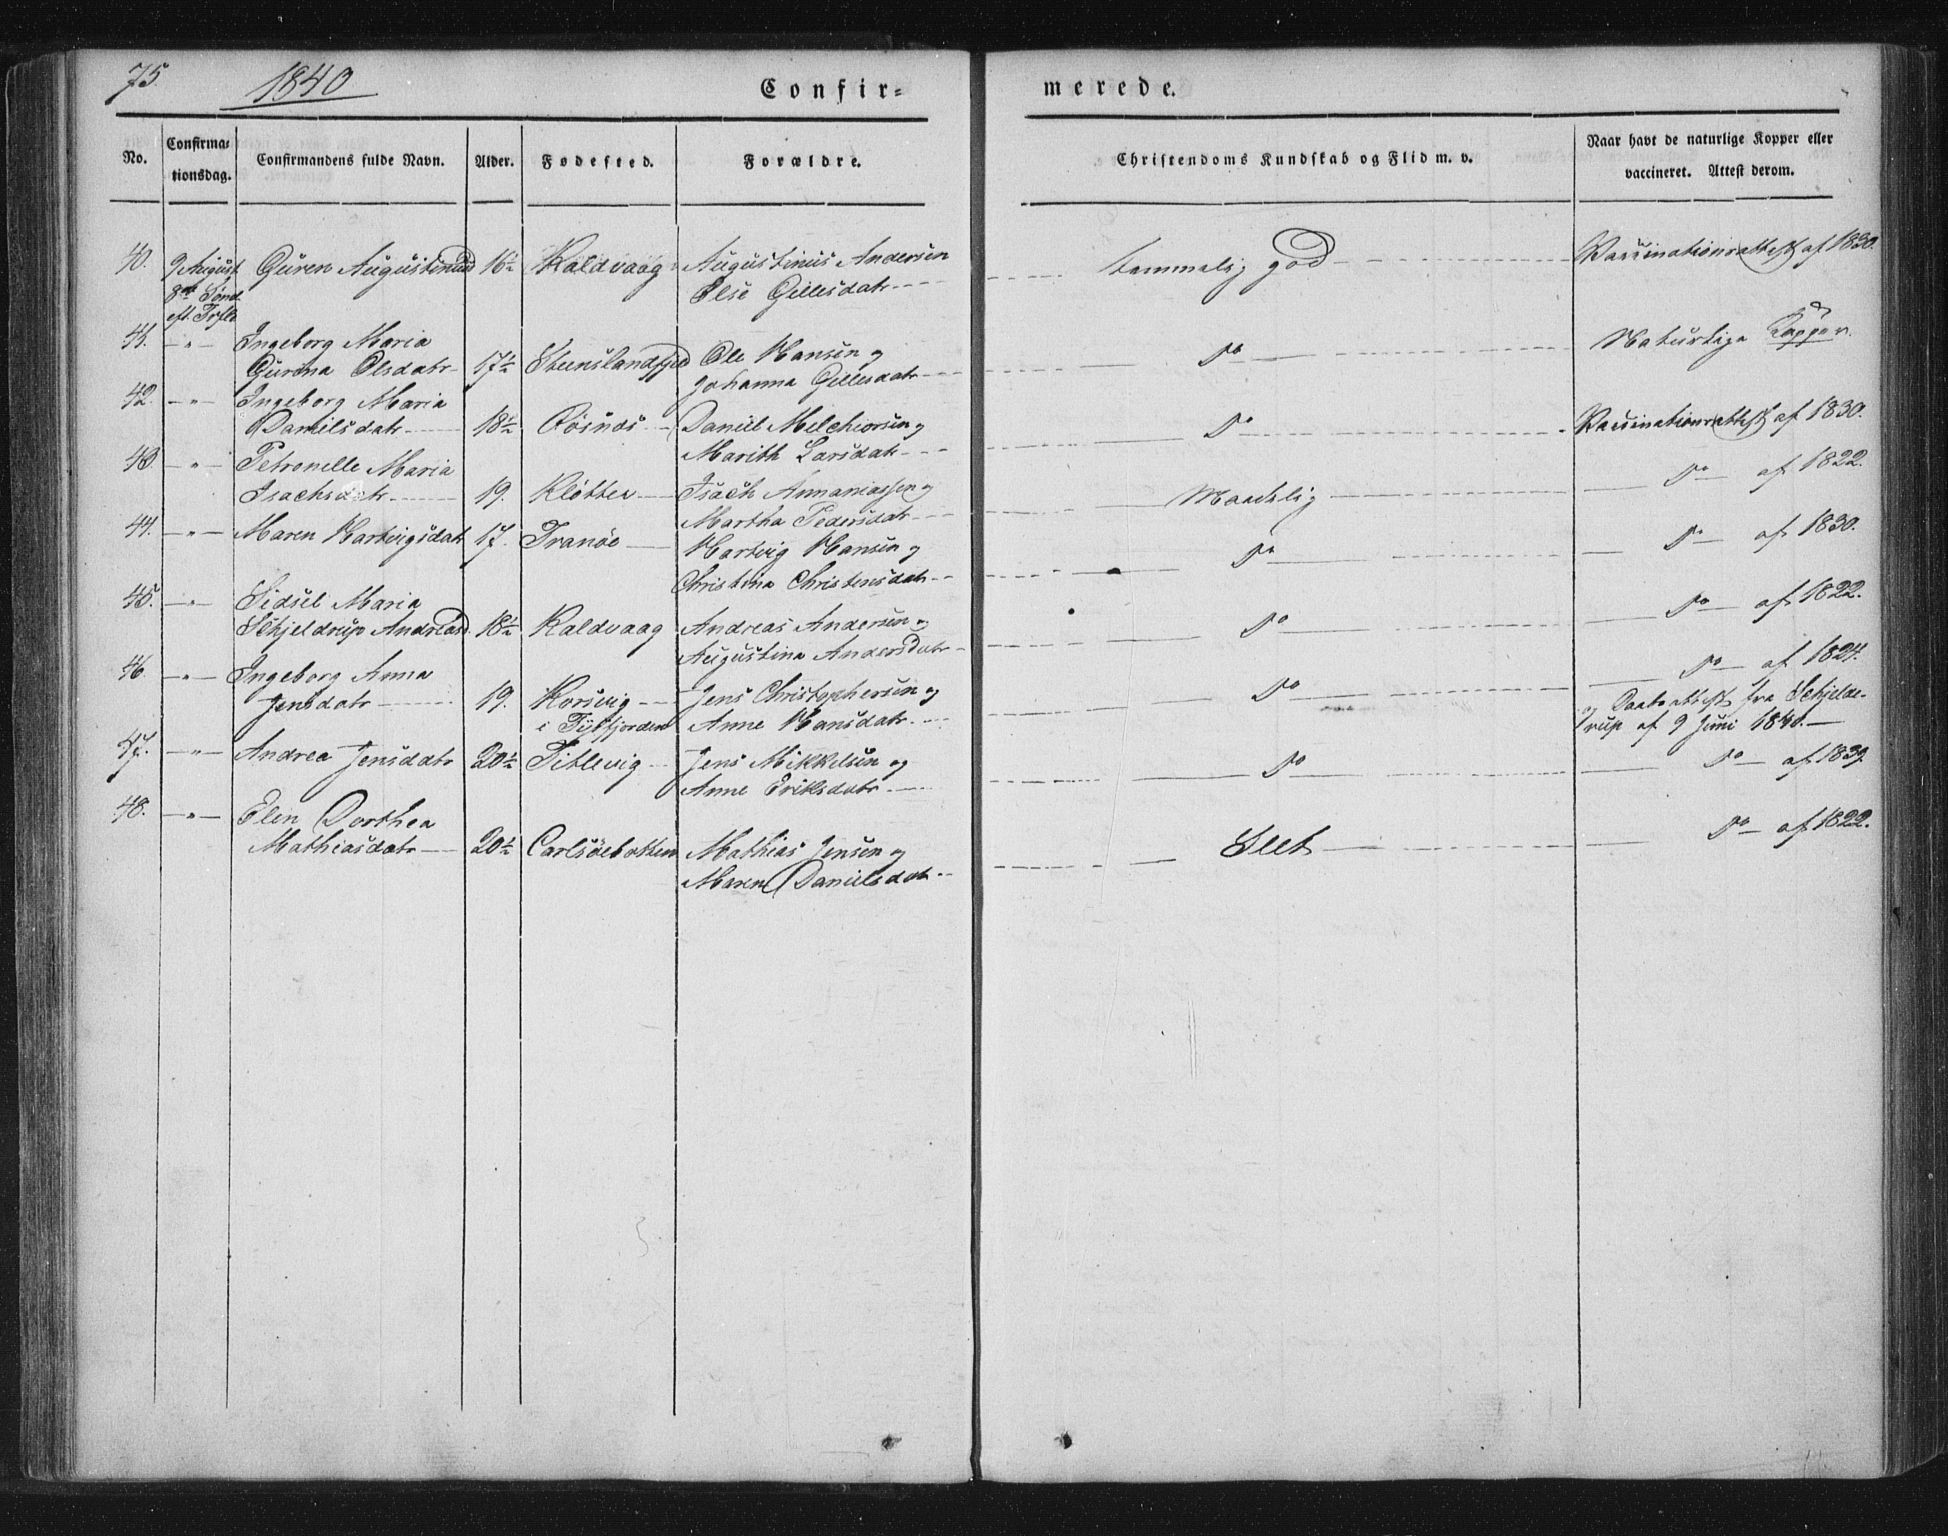 75.
1840
Confir=
merede.
No.
Confirma=
tionsdag.
Confirmandens fulde Navn.
Alder.
Fødested.
Forældre.
Christendoms Kundskab og Flid m. v.
Naar havt de naturlige Kopper eller
vaccineret. Attest derom.
40. 9 August Guren Augustinusd 16½ Kaldvaag Augustinus Andersen temmelig god Vaccinationsattest af 1830.
8de Sønd. Else Gillesdatr
eft. Trft.
41. - " - Ingeborg Maria Naturlige Kopper.
Gurina Olsdatr 17½ Steenslandsfjd Ole Hansen og Do
Johanna Gillesdatr
42. - " - Ingeborg Maria
Danielsdatr 18½ Røsnæs Daniel Melchiorsen og Do Vaccinationsattest af 1830.
Marith Larsdatr
43 - " Petronelle Maria Do af 1822.
Isachsdatr 19. Kløtten Isach Annaniassen og Maadelig
Martha Pedersdatr
44. - " - Maren Hartvigsdatr 17. Tranøe Hartvig Hansen og Do Do af 1830.
Christina Christensdatr
45. - " Sidsel Maria Do af 1822.
Schjeldrup Andreasd. 18½ Kaldvaag Andreas Andersen og Do
Augustina Andersdatr
46 - " - Ingeborg Anna Do af 1824.
Jensdatr 19. Korsvig Jens Christophersen og Do og Daabsattest fra Schjelde-
i Tysfjorden Anne Hansdatr. rup af 9 Juni 1840.
47. - " Andrea Jensdatr 20½ Titlevig Jens Mikkelsen og Do Do af 1839.
Anne Eriksdatr.
48. - " - Elen Dorthea Do af 1822.
Mathiasdatr 20½ Carlsøebotten Mathias Jensen og Slet
Maren Danielsdatr.